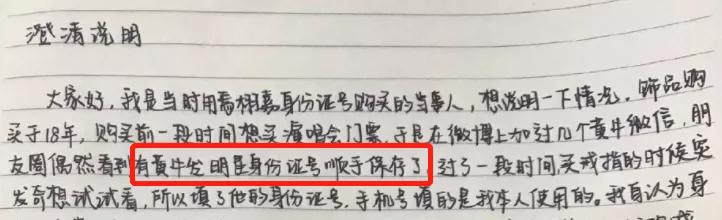 澄清说明
大家好，我是当时用焉栩嘉身份证号购买的当事人，想说明一下情况。饰品购
买于18年，购买前一段时间想买演唱会门票，于是在微博上加过几个黄牛微信，朋
友圈偶然看到有黄牛发明星身份证号顺手保存了，过了一段时间，买戒指的时候突
发奇想试试看，所以填了他的身份证号，手机号填的是我本人使用的。我自认为身